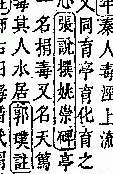 年秦人毒涇上流
又同育亭育化育之
心張說撰姚崇碑亭
一名捐毒又名天篤
毒其人水居郭璞註